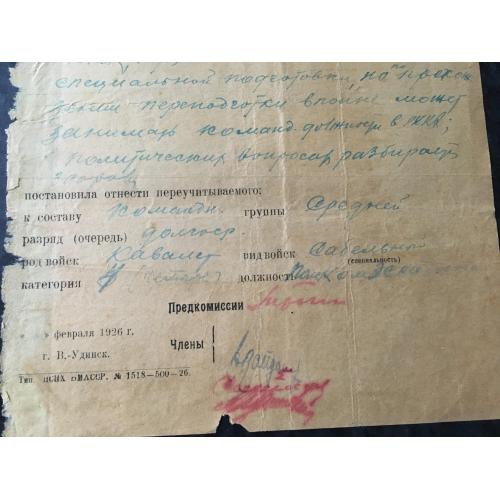 специальной подготовки, но
переподготки в полне может
занимать команд. должности в РККА;
политических вопросах разбирается
здорово
постановила отнести переучитываемого:
к составу командн. группы Средней
разряд (очередь) долгоср.
род войск Кавалер вид войск Сабельный
(специальность)
категория должность
Предкомиссии
февраля 1926 г.
Члены
г. В.-Удинск.
Тип. ЦСНХ БМАССР. № 1518—500—26.